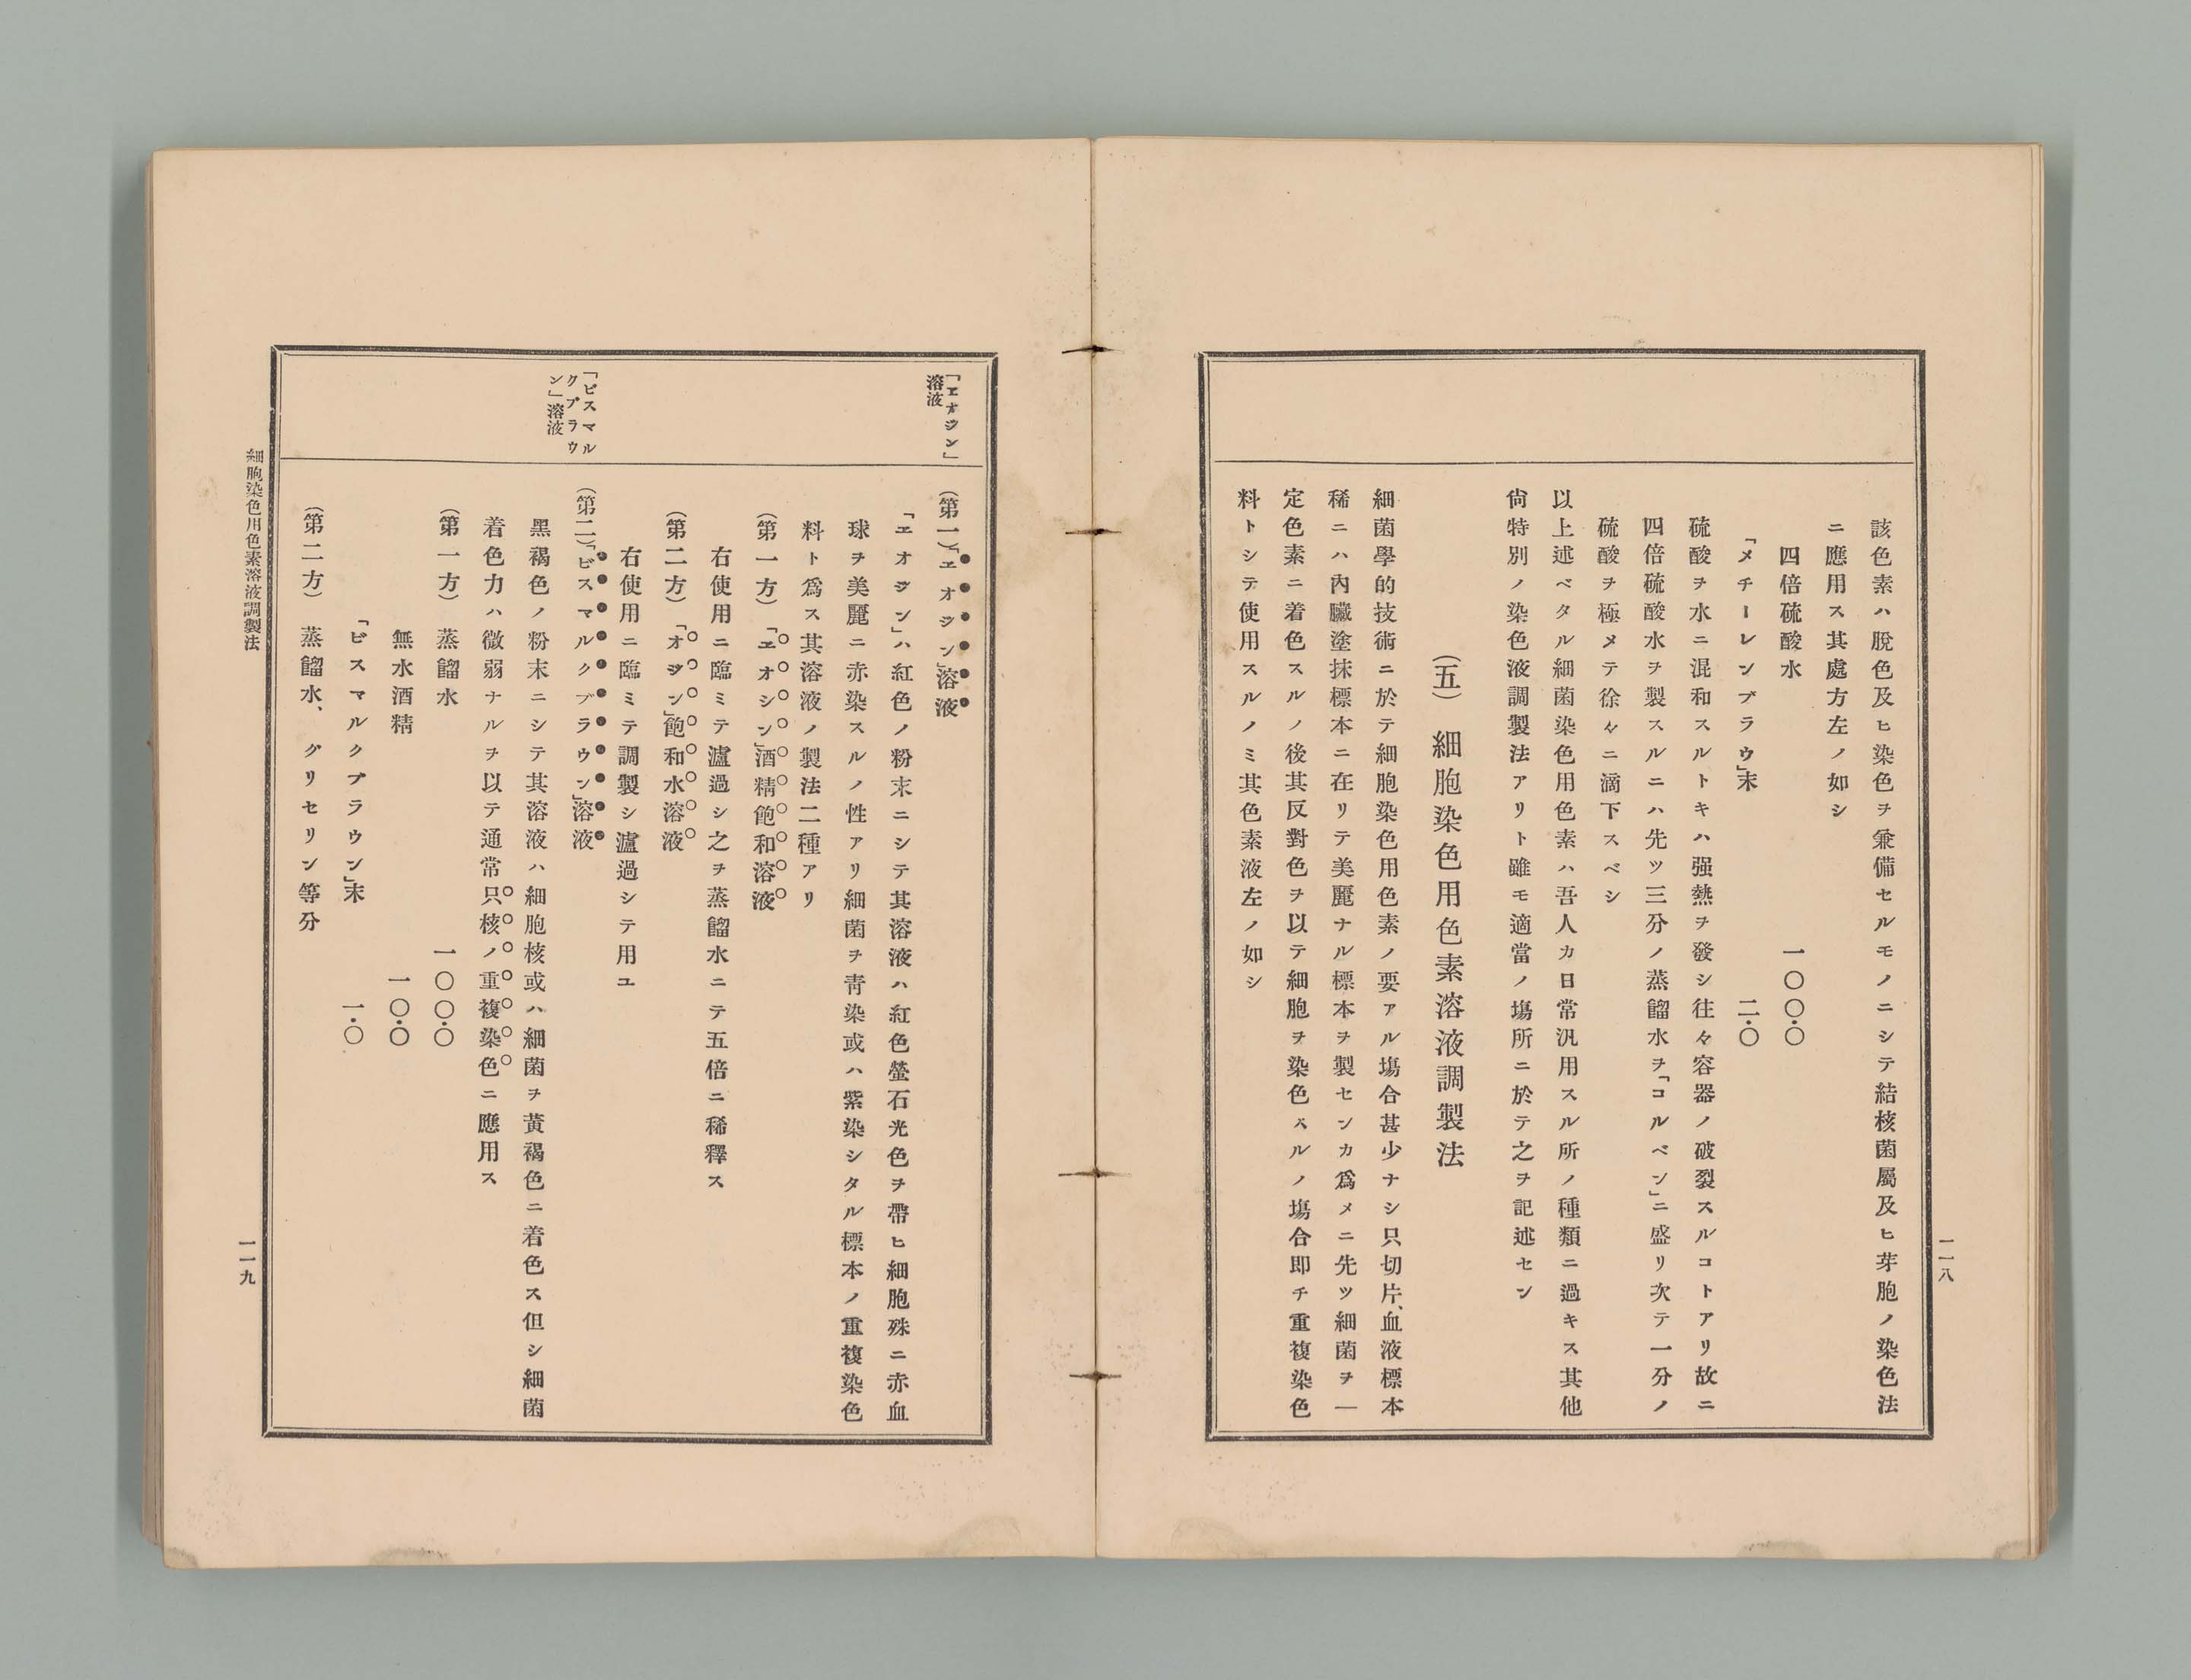 一一八
該色素ハ脫色及ヒ染色ヲ兼備セルモノニシテ結核菌屬及ヒ芽胞ノ染色法
ニ應用ス其處方左ノ如シ
四倍硫酸水　一〇〇・〇
「メチーレンブラウ」末　二・〇
硫酸ヲ水ニ混和スルトキハ强熱ヲ發シ往々容器ノ破裂スルコトアリ故ニ
四倍硫酸水ヲ製スルニハ先ツ三分ノ蒸餾水ヲ「コルベン」ニ盛リ次テ一分ノ
硫酸ヲ極メテ徐々ニ滴下スベシ
以上述ベタル細菌染色用色素ハ吾人カ日常汎用スル所ノ種類ニ過キス其他
尙特別ノ染色液調製法アリト雖モ適當ノ塲所ニ於テ之ヲ記述セン
（五）　細胞染色用色素溶液調製法
細菌學的技術ニ於テ細胞染色用色素ノ要アル塲合甚少ナシ只切片、血液標本
稀ニハ內臟塗抹標本ニ在リテ美麗ナル標本ヲ製センカ爲メニ先ツ細菌ヲ一
定色素ニ着色スルノ後其反對色ヲ以テ細胞ヲ染色スルノ塲合卽チ重複染色
料トシテ使用スルノミ其色素液左ノ如シ
「エオジン」
溶液
（第一）「エオジン」溶液
「エオジン」ハ紅色ノ粉末ニシテ其溶液ハ紅色螢石光色ヲ帶ヒ細胞殊ニ赤血
球ヲ美麗ニ赤染スルノ性アリ細菌ヲ靑染或ハ紫染シタル標本ノ重複染色
料ト爲ス其溶液ノ製法二種アリ
（第一方）「エオシン」酒精飽和溶液
右使用ニ臨ミテ瀘過シ之ヲ蒸餾水ニテ五倍ニ稀釋ス
（第二方）「オジン」飽和水溶液
右使用ニ臨ミテ調製シ瀘過シテ用ユ
「ビスマル
クブラウ
ン」溶液
（第二）「ビスマルクブラウン」溶液
黑褐色ノ粉末ニシテ其溶液ハ細胞核或ハ細菌ヲ黃褐色ニ着色ス但シ細菌
着色力ハ微弱ナルヲ以テ通常只核ノ重複染色ニ應用ス
（第一方）　蒸餾水　一〇〇・〇
無水酒精　一〇・〇
「ビスマルクブラウン」末　一・〇
（第二方）　蒸餾水、グリセリン等分
細胞染色用色素溶液調製法
一一九